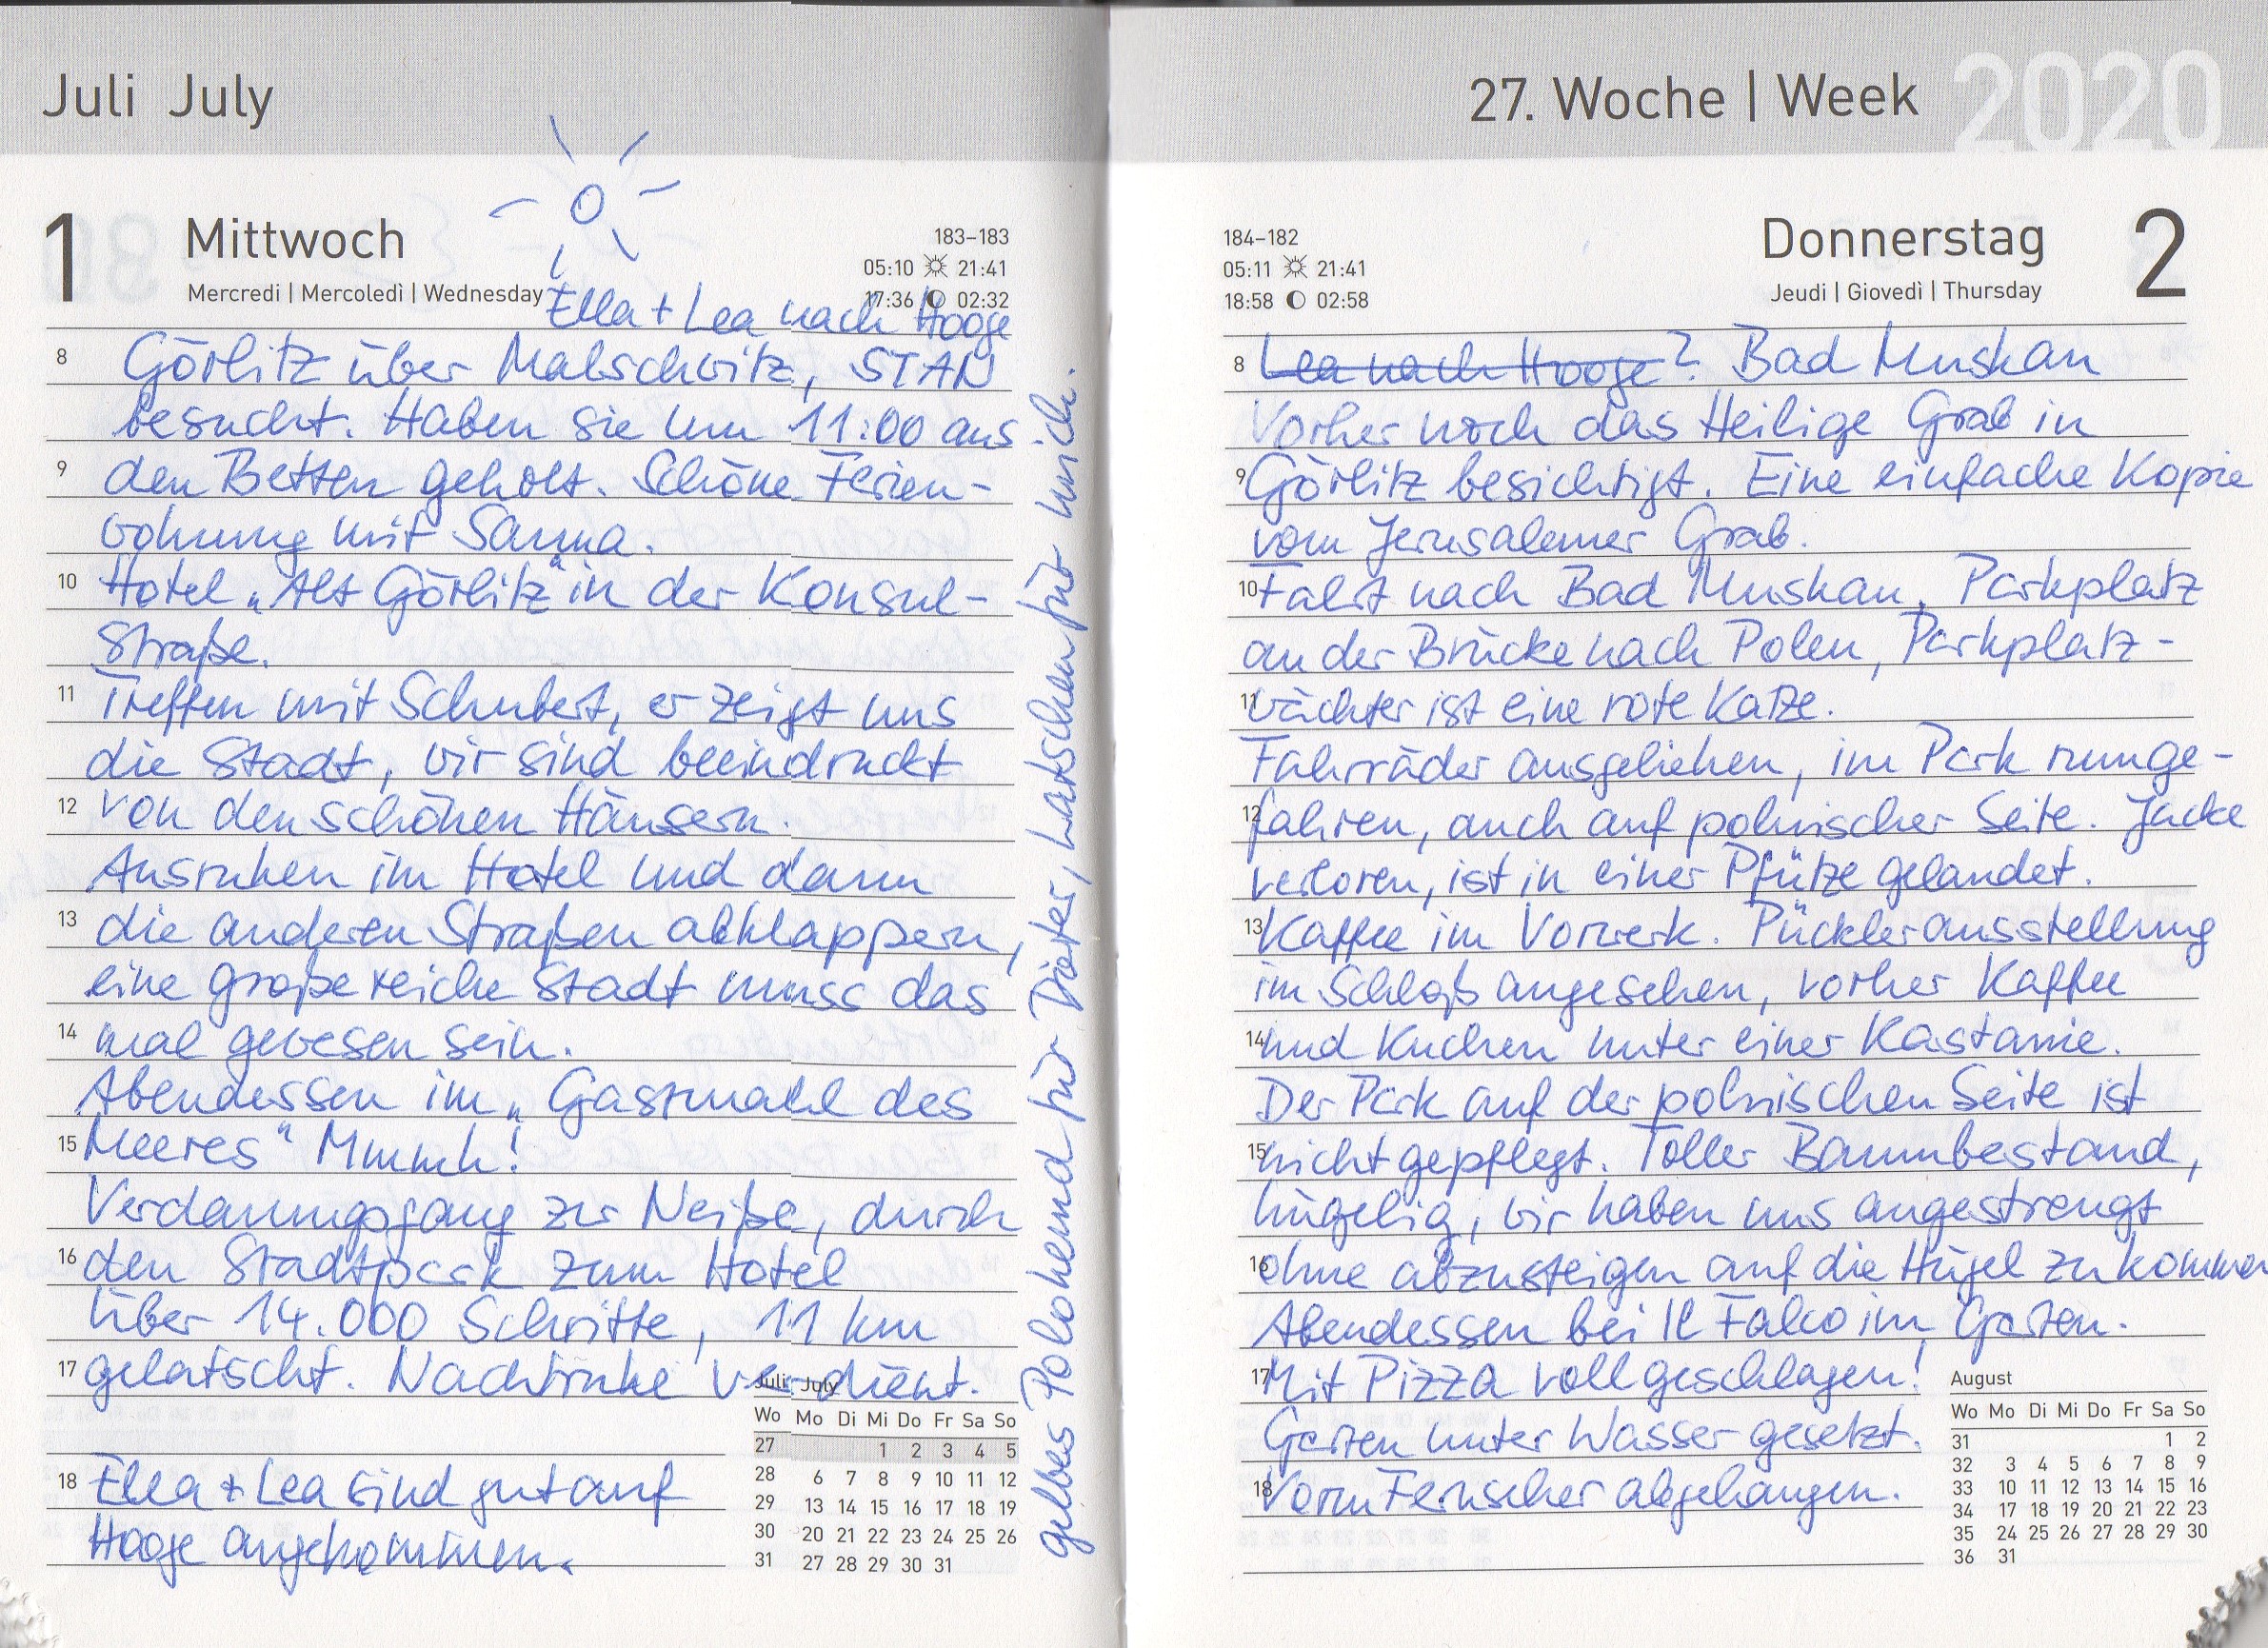 Juli July
1 Mittwoch
Mercredi | Mercoledì | Wednesday
183–183
05:10 21:41
17:36 02:32
Ella + Lea nach Hooge
8 Görlitz über Malschwitz, STAN
besucht. Haben sie um 11:00 aus
9 den Betten geholt. Schöne Ferien-
wohnung mit Sauna.
10 Hotel „Alt Görlitz" in der Konsul-
straße.
11 Treffen mit Schubert, er zeigt uns
die Stadt, wir sind beeindruckt
12 von den schönen Häusern.
Ausruhen im Hotel und dann
13 die anderen Straßen abklappern,
eine große reiche Stadt muss das
14 mal gewesen sein.
Abendessen im „Gastmahl des
15 Meeres" Mmmh!
Verdauungsgang zur Neiße, durch
16 den Stadtpark zum Hotel
Über 14.000 Schritte, 11 km
17 gelatscht. Nachtruhe verdient.
18 Ella + Lea sind gut auf
Hooge angekommen.
gelbes Polohemd für Dieter, Latschen für mich.
Juli July
Wo Mo Di Mi Do Fr Sa So
27 1 2 3 4 5
28 6 7 8 9 10 11 12
29 13 14 15 16 17 18 19
30 20 21 22 23 24 25 26
31 27 28 29 30 31
27. Woche | Week 2020
184–182
05:11 21:41
18:58 02:58
Donnerstag 2
Jeudi | Giovedì | Thursday
8 Lea nach Hooge? Bad Muskau
Vorher noch das Heilige Grab in
9 Görlitz besichtigt. Eine einfache Kopie
vom Jerusalemer Grab.
10 Fahrt nach Bad Muskau, Parkplatz
an der Brücke nach Polen, Parkplatz-
11 wächter ist eine rote Katze.
Fahrräder ausgeliehen, im Park rumge-
12 fahren, auch auf polnischer Seite. Jacke
verloren, ist in einer Pfütze gelandet.
13 Kaffee im Vorwerk. Pücklerausstellung
im Schloß angesehen, vorher Kaffee
14 und Kuchen unter einer Kastanie.
Der Park auf der polnischen Seite ist
15 nicht gepflegt. Toller Baumbestand,
hügelig, wir haben uns angestrengt
16 ohne abzusteigen auf die Hügel zu kommen
Abendessen bei Il Falco im Garten.
17 Mit Pizza vollgeschlagen!
Garten unter Wasser gesetzt.
18 Vorm Fernseher abgehangen.
August
Wo Mo Di Mi Do Fr Sa So
31 1 2
32 3 4 5 6 7 8 9
33 10 11 12 13 14 15 16
34 17 18 19 20 21 22 23
35 24 25 26 27 28 29 30
36 31